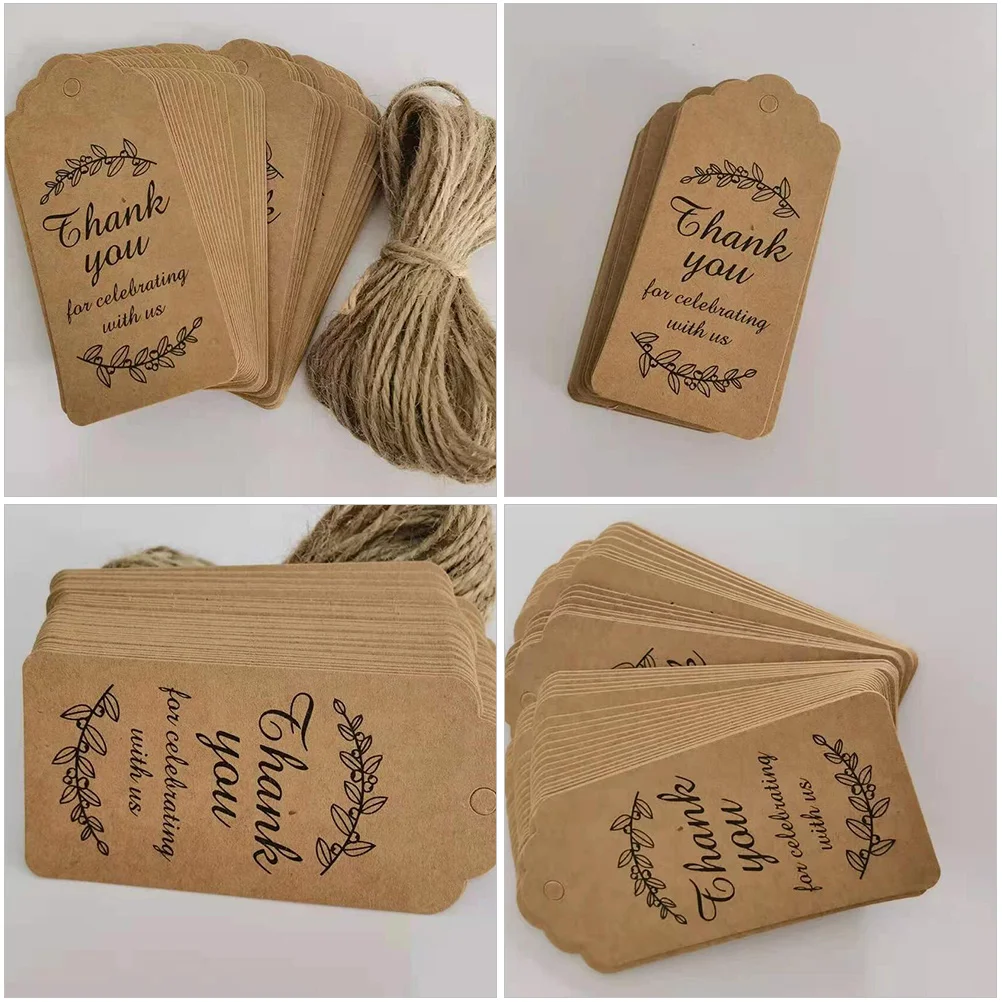 Thank
you
for celebrating
with us
Thank
you
for celebrating
with us
Thank
you
for celebrating
with us
Thank
you
for celebrating
with us